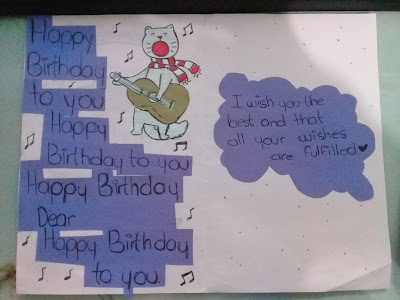 Happy
Birthday
to you
Happy
Birthday to you
Happy Birthday
Dear
Happy Birthday
to you.
I wish you the
best and that
all your wishes
are fulfilled